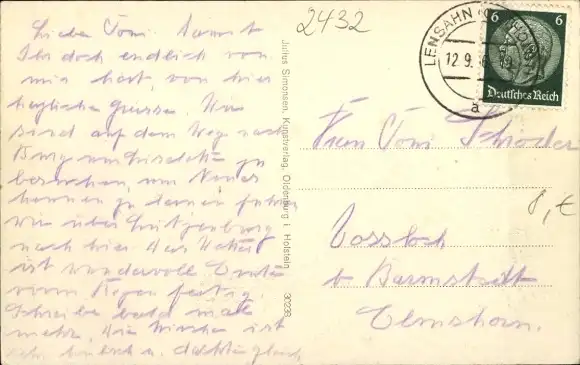 Liebe Toni. Damit
Ihr doch endlich von
mir hört, von hier
herzliche Grüsse. Wir
sind auf dem Wege nach
Burg um Friedchen zu
besuchen, von
zu fuhren
wir über Lütjenburg
nach hier. Das Wetter
ist wundervoll. Ernte
vom Regen fertig.
Schreibe bald mal
mehr. Die Kirche ist
sehr hübsch u. dahinter gleich
2432
Julius Simonsen, Kunstverlag, Oldenburg i. Holstein 3023R
LENSAHN (HOLST)
12.9.
a
6 6
Deutsches Reich
Frau Toni Schröder
8,€
Vossloch
b Barmstedt
Elmshorn.